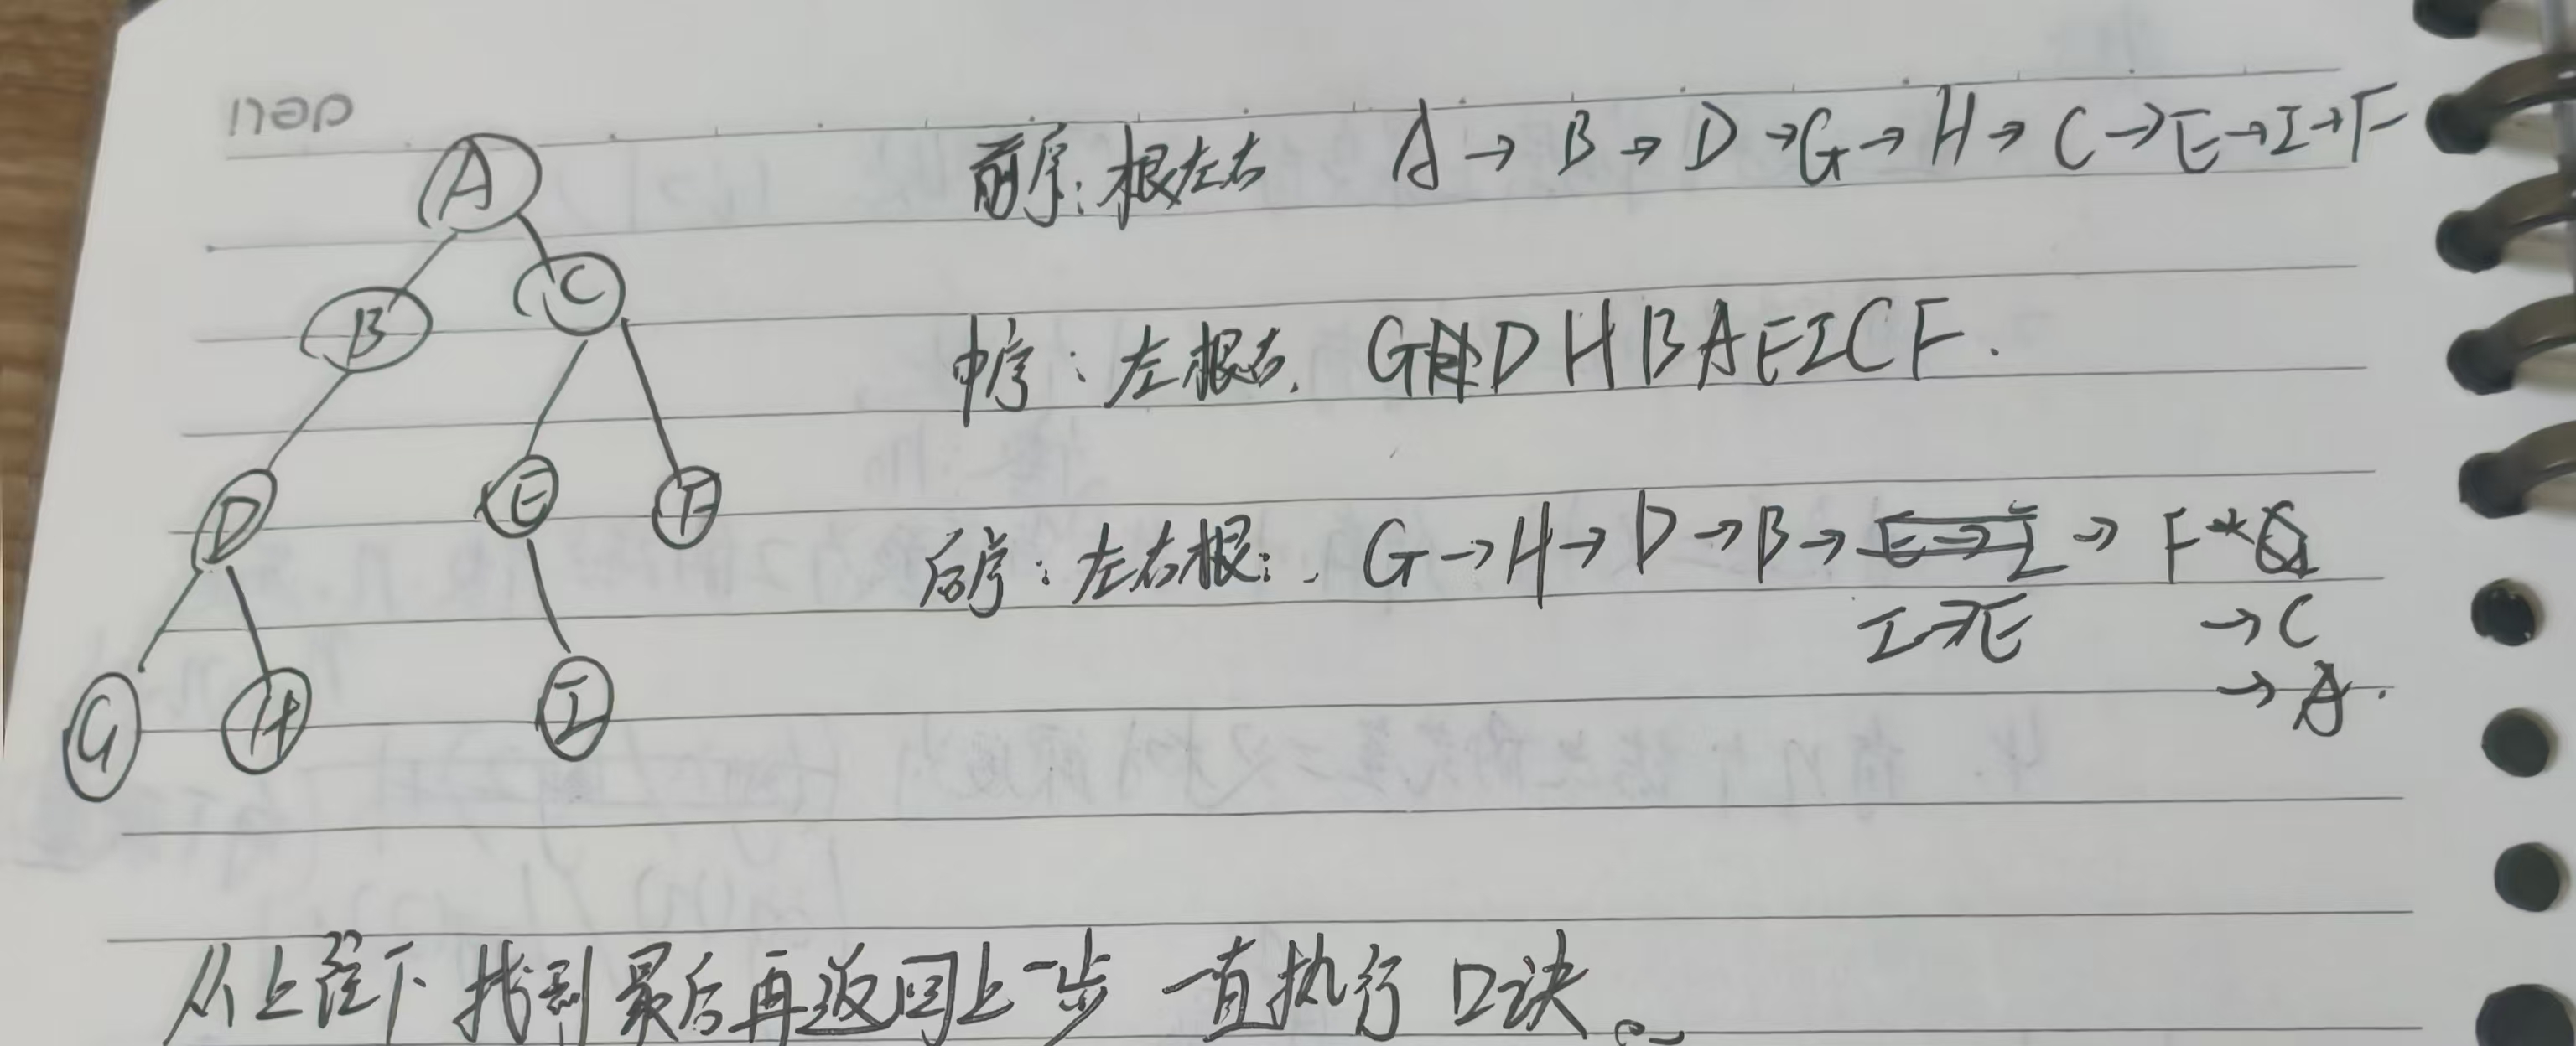 A
B
C
D
E
F
G
H
I
前序：根左右 A → B → D → G → H → C → E → I → F
中序：左根右. G D H B A E I C F.
后序：左右根：. G → H → D → B → E → I → F
I → E → C
→ A.
从上往下 找到最后再返回上一步 一直执行 口诀。